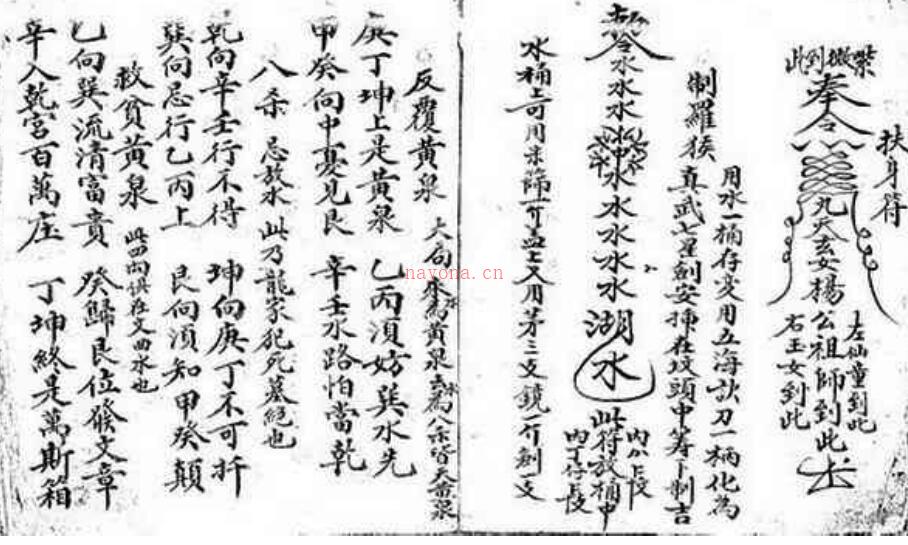 扶身符
紫微到此
奉令
九天玄女楊公祖師到此
左仙童到此
右玉女到此
用水一桶存変用五海訣刀一柄化為
制羅猴 真武七星劍安揷在坟頭中筭下制吉
令水水水水水水水水湖水
此符放桶中
水桶上可用米篩一个盖上又用茅三支鏡一个劍一支
反覆黃泉
庚丁坤上是黃泉 乙丙須妨巽水先
甲癸向中憂見艮 辛壬水路怕當乾
八杀 忌放水 此乃龍家犯死墓絕也
乾向辛壬行不得 坤向庚丁不可扦
巽向忌行乙丙上 艮向須知甲癸顛
救貧黃泉 此四向俱在文曲水也
乙向巽流清富貴 癸歸艮位發文章
辛入乾宮百萬庄 丁坤終是萬斯箱
nayona.cn